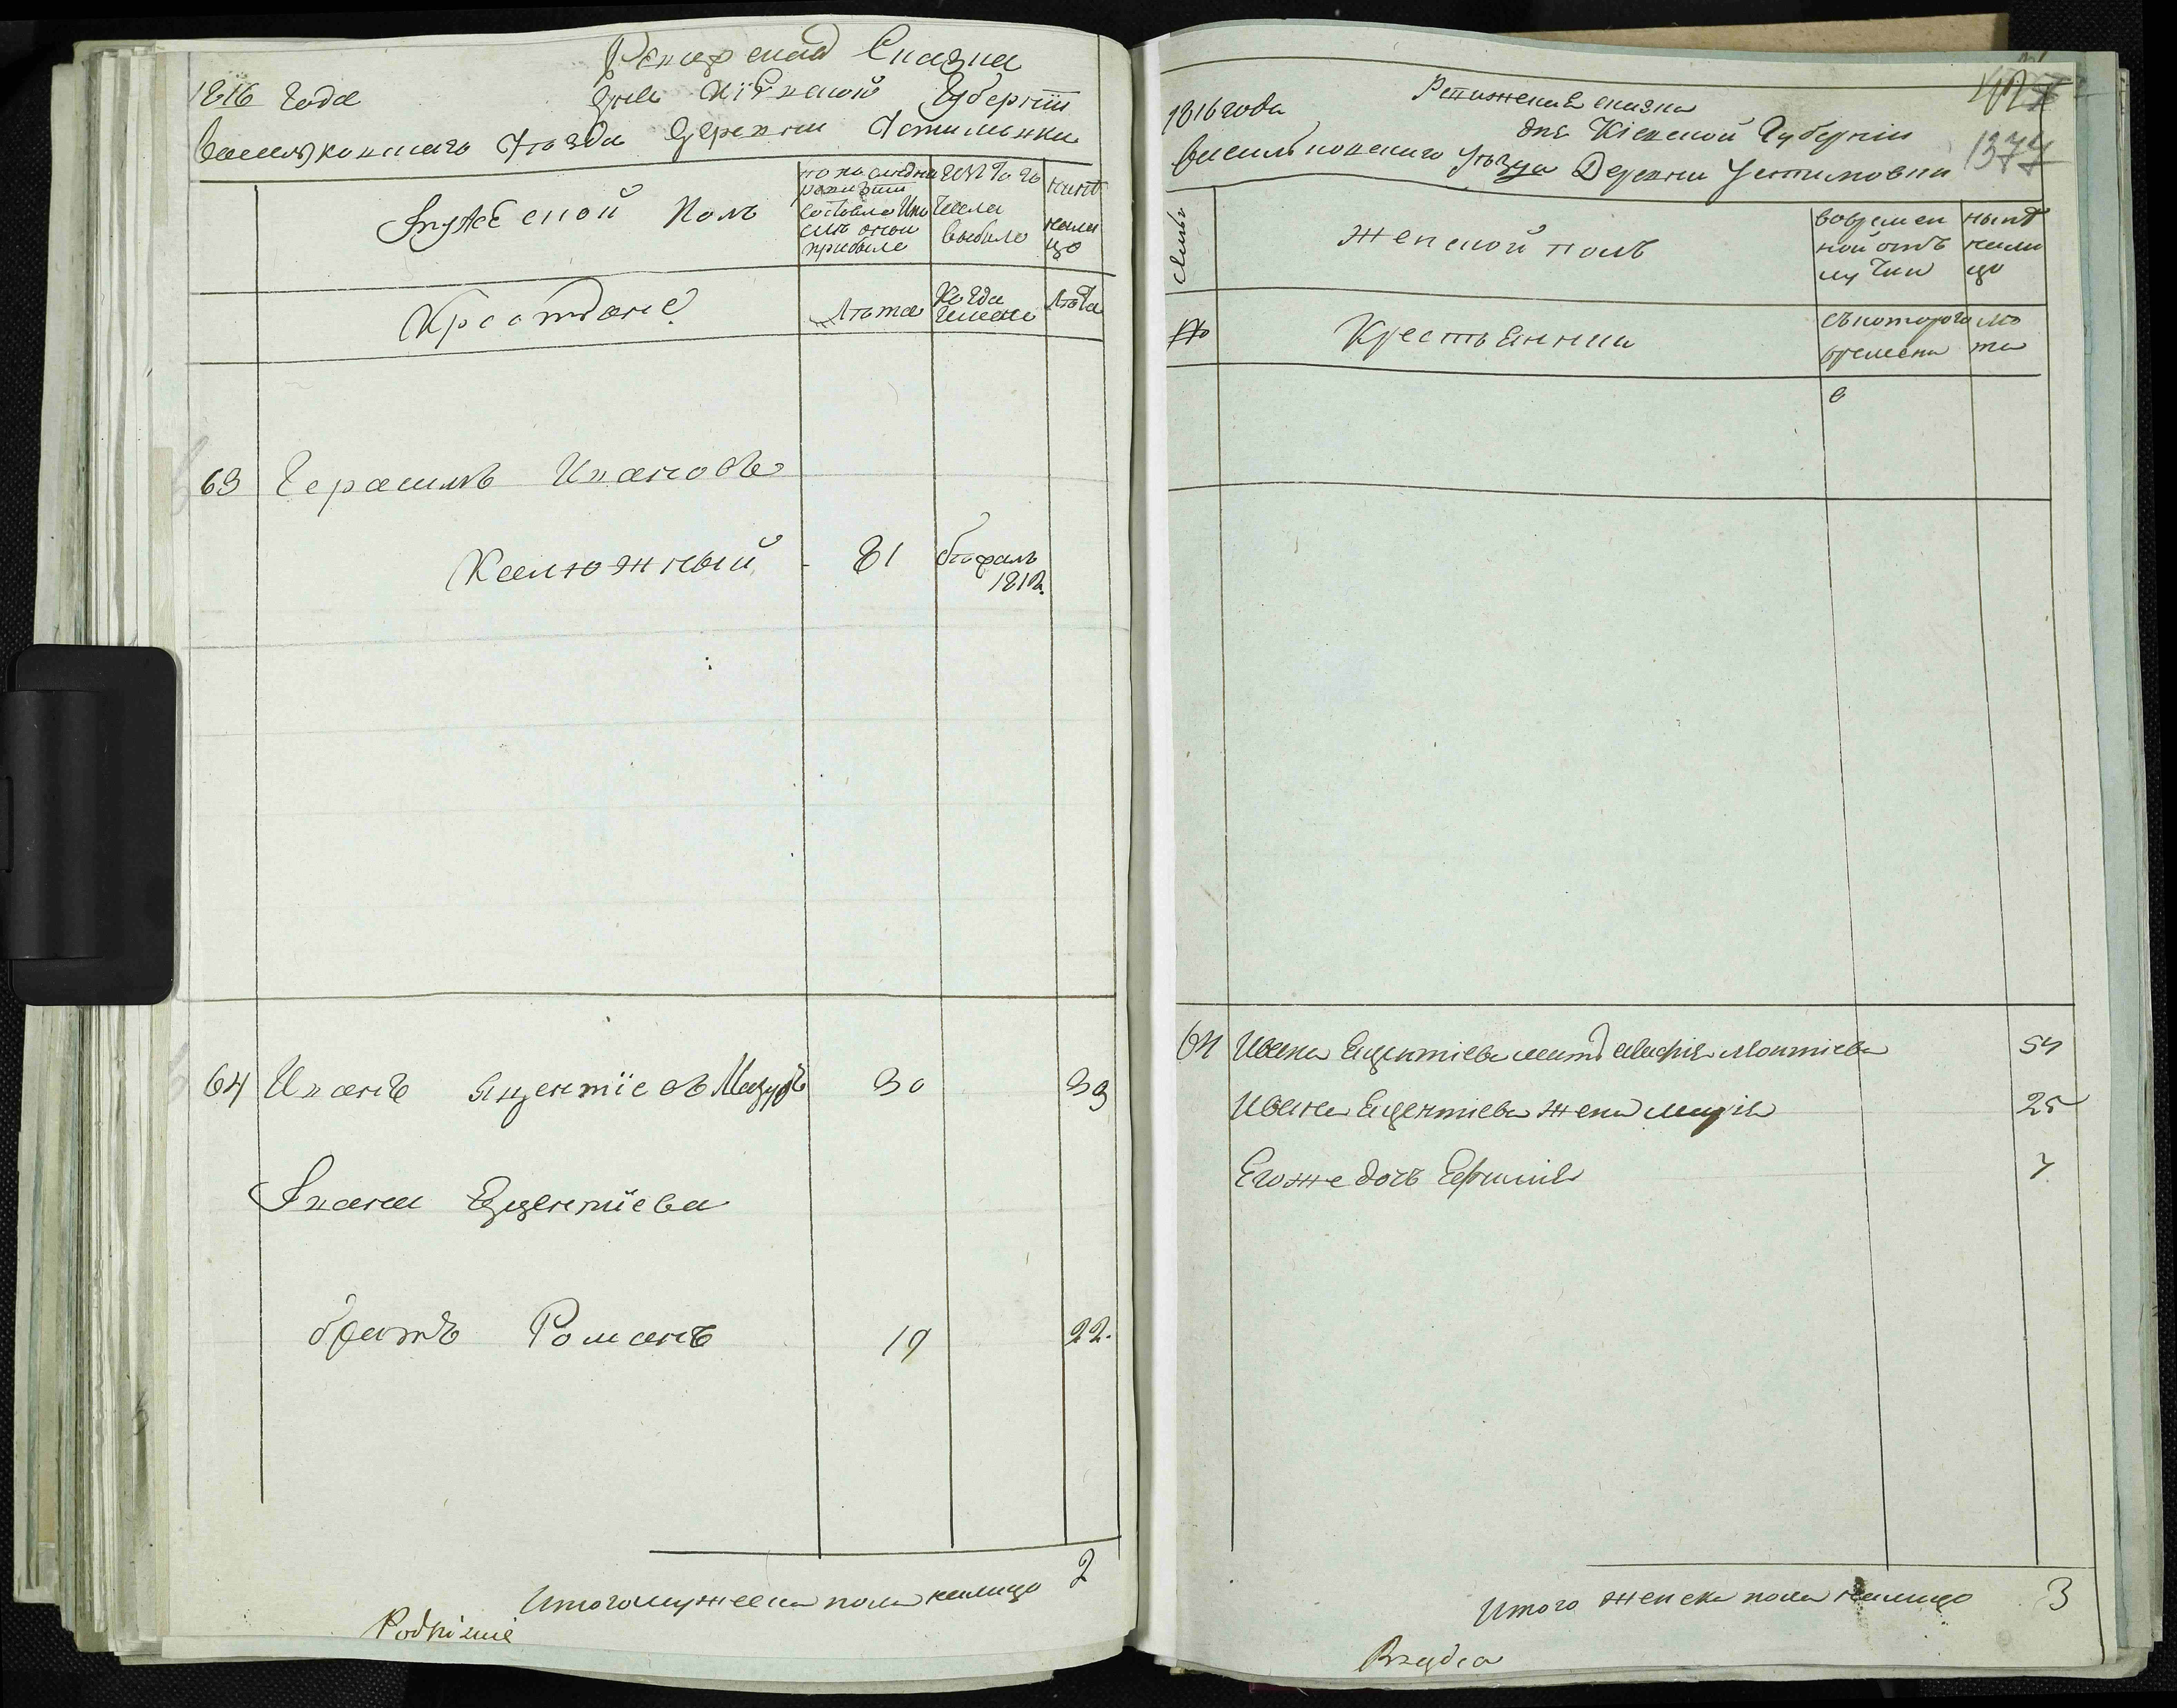 Ревизская Сказка
1816 года
дня Кіевской Губерніи
Васильковскаго Уезда Деревни Устимовки
Мужеской полъ
по последней ревизіи состояло и после оной прибыло
изъ того числа выбыло
ныне на лицо
Крестьяне
Лета
Когда именно
Лета
63 Герасимъ Ивановъ
Калюжный 81 бежалъ
1812.
64 Иванъ Яцентіевъ Мазуръ 30 33
Ивана Яцентіева
братъ Романъ 19 22.
Итого мужеска пола на лицо 2
1377
1816 года
Ревижская сказка
дня Кіевской Губерніи
Васильковскаго уезда Деревни Устимовки
Женской полъ
во временной отлучки
ныне на лицо
№
Крестьянки
съ котораго времени
лета
64 Ивана Яцентіева мать Матвіева 54
Ивана Яцентіева жена Марія 25
Его же дочь Ефимія 7
Итого женска пола на лицо 3